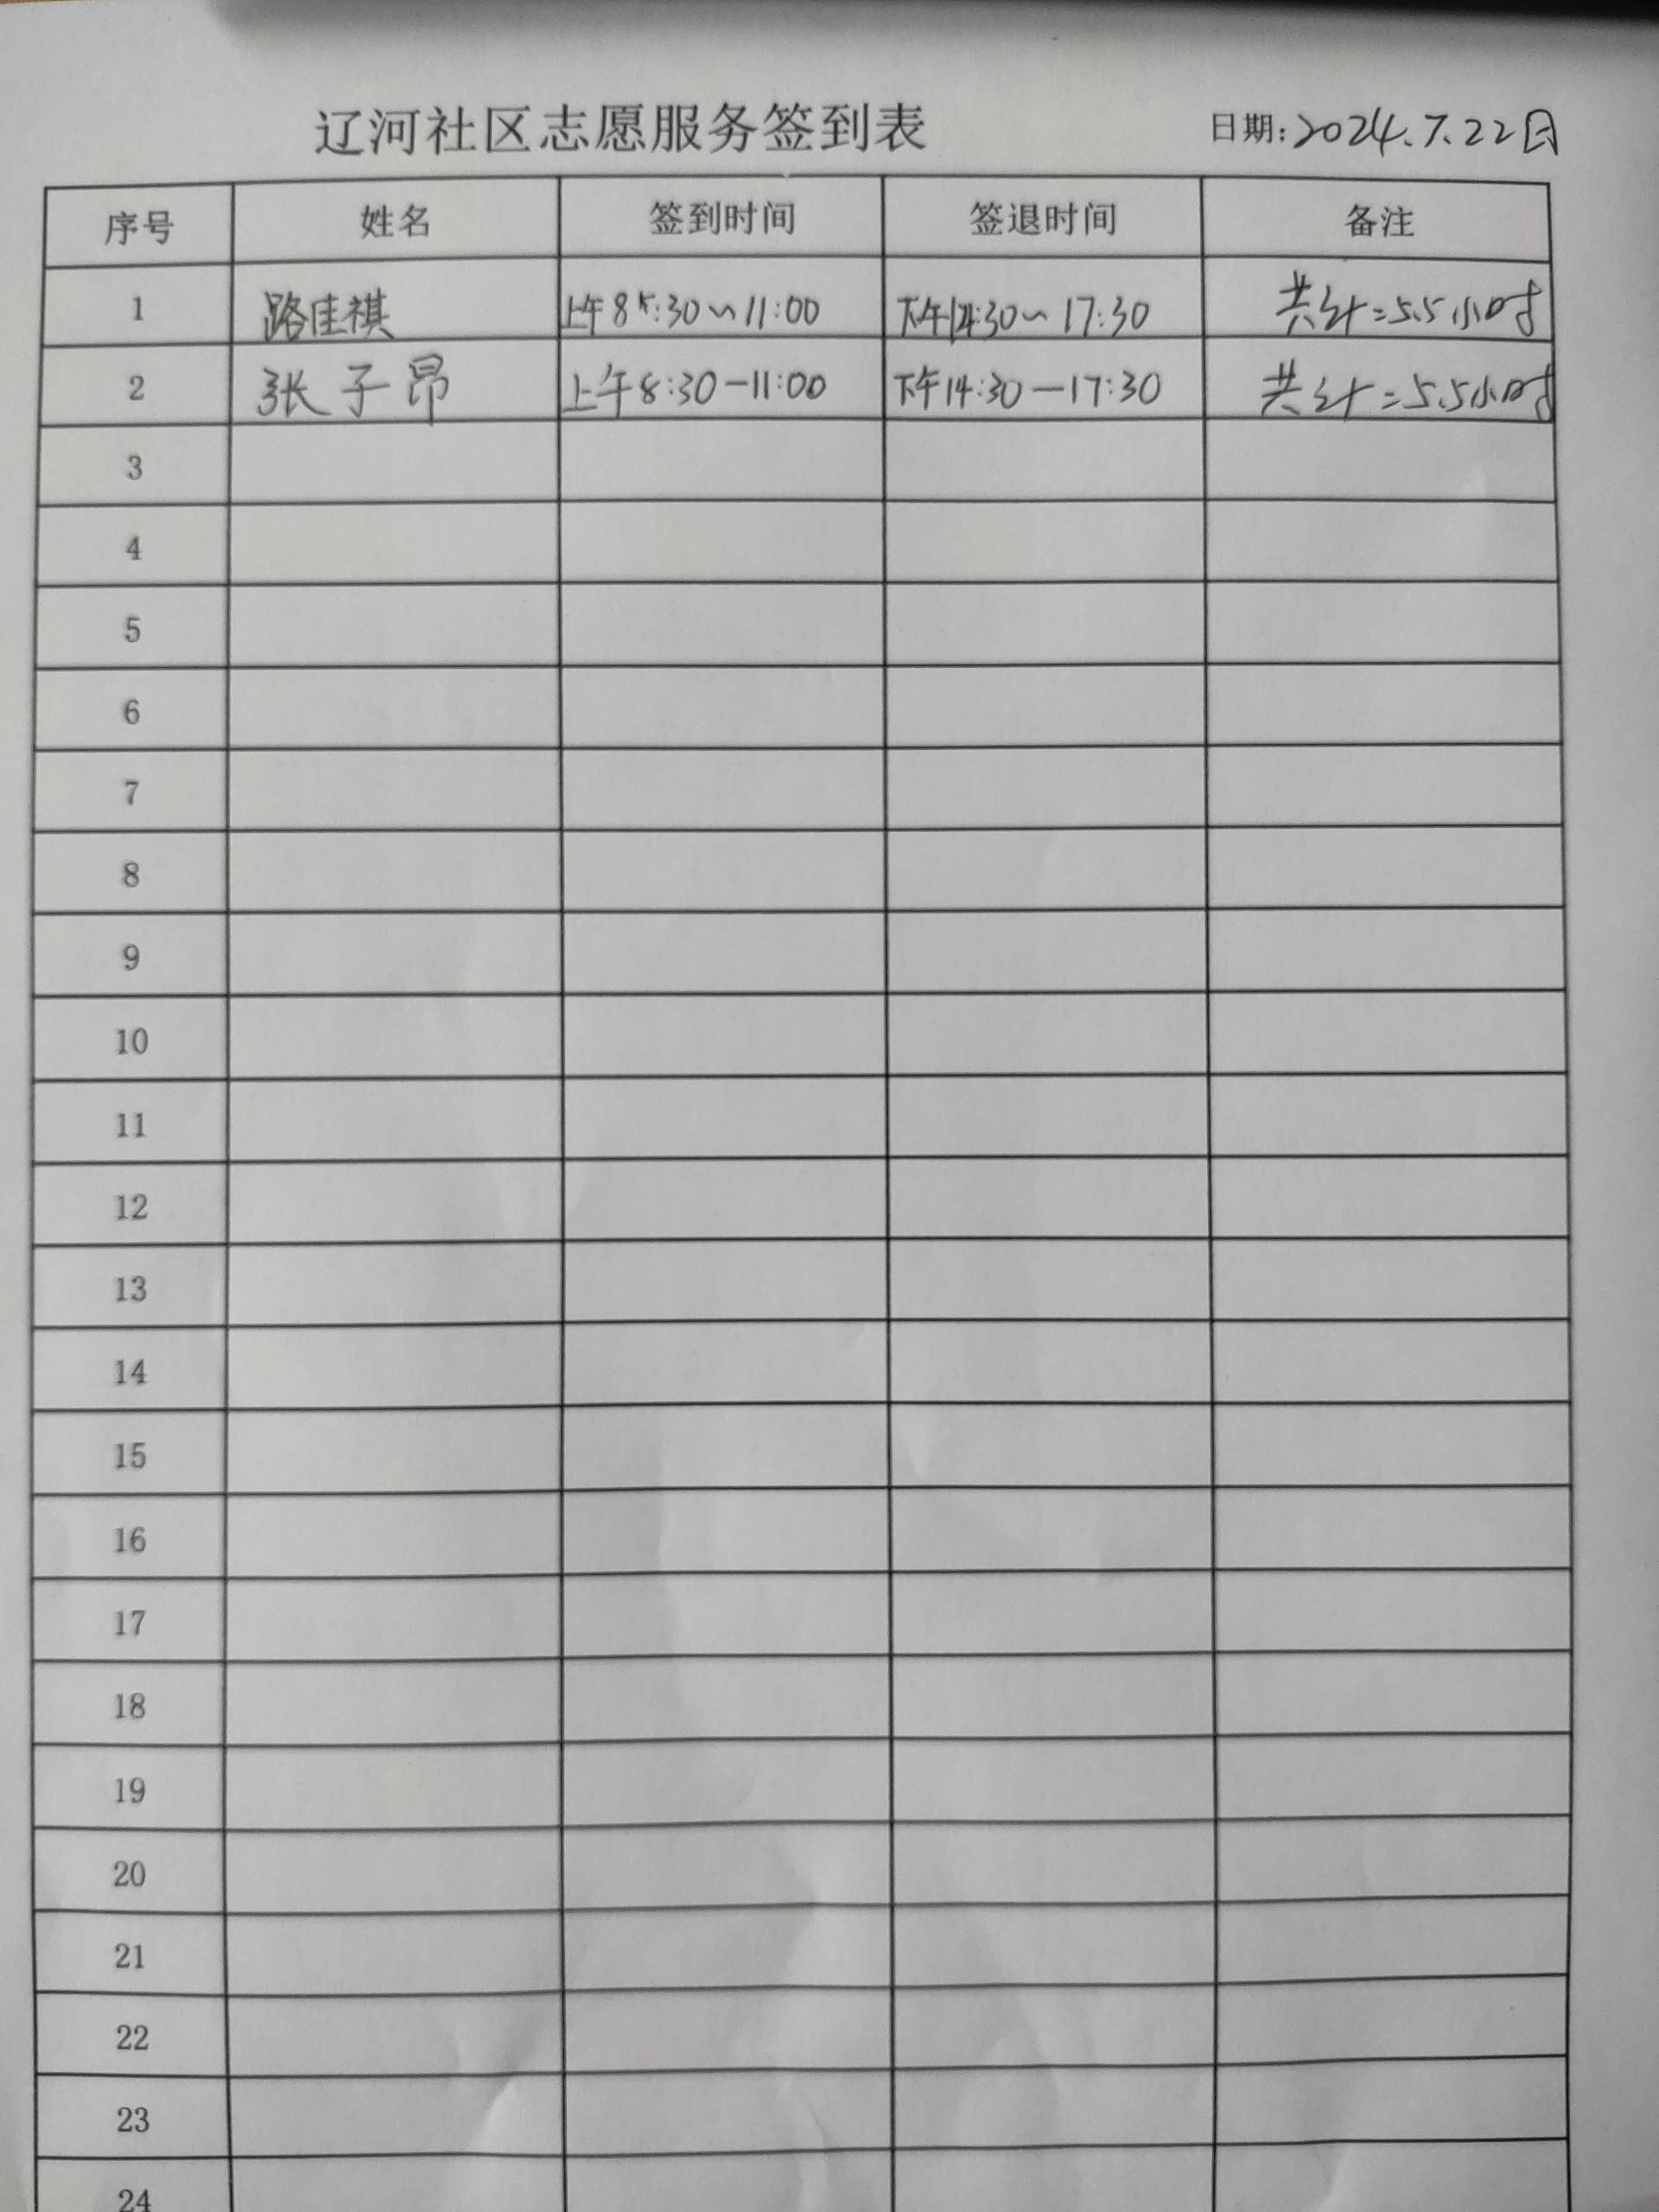 辽河社区志愿服务签到表 日期:2024.7.22日
序号 姓名 签到时间 签退时间 备注
1 路佳祺 上午8:30~11:00 下午14:30~17:30 共计=5.5小时
2 张子昂 上午8:30-11:00 下午14:30-17:30 共计=5.5小时
3
4
5
6
7
8
9
10
11
12
13
14
15
16
17
18
19
20
21
22
23
24